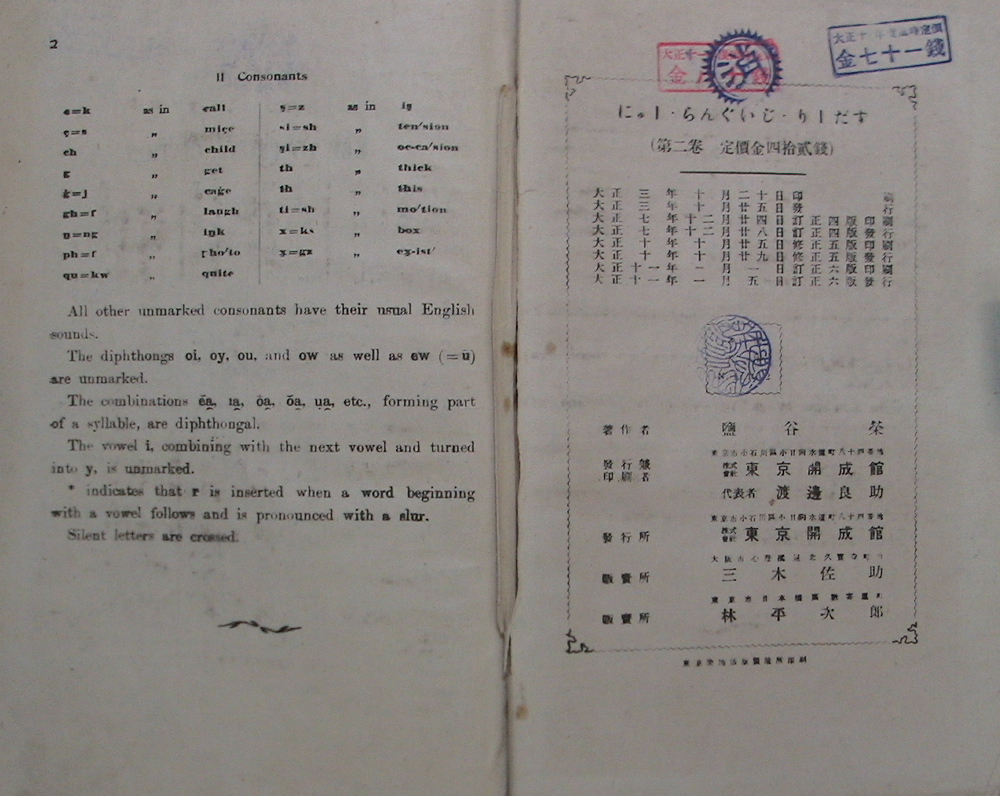 2
II Consonants
c=k as in call
ç=s „ miçe
ch „ child
g „ get
ġ=j „ caġe
gh=f „ laugh
ṉ=ng „ iṉk
ph=f „ pho'to
qu=kw „ quite
ṣ=z as in iṣ
si=sh „ ten'sion
ṣi=zh „ oc-ca'ṣion
th „ thick
th „ this
ti=sh „ mo'tion
x=ks „ box
x̱=gz „ ex̱-ist'
All other unmarked consonants have their usual English
sounds.
The diphthongs oi, oy, ou, and ow as well as ew (=ū)
are unmarked.
The combinations etc., forming part
of a syllable, are diphthongal.
The vowel i, combining with the next vowel and turned
into y, is unmarked.
* indicates that r is inserted when a word beginning
with a vowel follows and is pronounced with a slur.
Silent letters are crossed.
大正十一年
金 錢
消
大正十 年 臨時定價
金七十一錢
にゅー・らんぐいじ・りーだす
(第二卷 定價金四拾貳錢)
大正三年十月二十日印刷
大正三年十月廿五日發行
大正七年十二月廿四日訂正四版印刷
大正七年十二月廿八日訂正四版發行
大正十年十月廿五日修正五版印刷
大正十年十月廿九日修正五版發行
大正十一年一月一日訂正六版印刷
大正十一年一月五日訂正六版發行
著作者 鹽谷榮
東京市小石川區小日向水道町八十四番地
發行兼印刷者 株式會社 東京開成館
代表者 渡邊良助
東京市小石川區小日向水道町八十四番地
發行所 株式會社 東京開成館
大阪市心齋橋 北久寶寺町
販賣所 三木佐助
東京市日本橋區數寄屋町
販賣所 林平次郎
東京築地活版製造所印刷